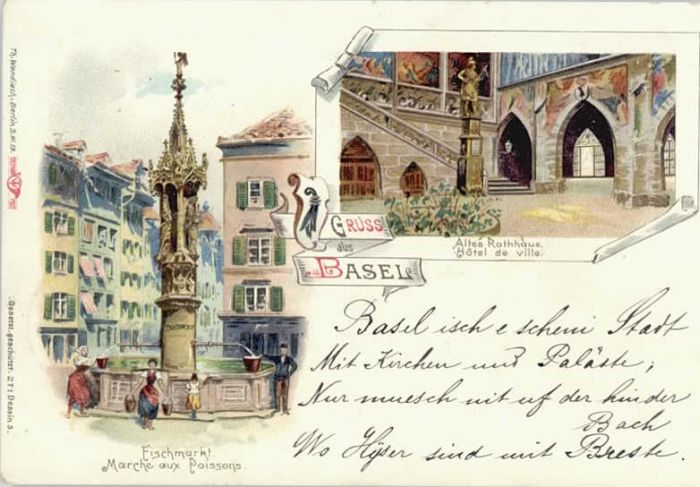 Th. Wendisch, Berlin S.W. 13.
Gesetzl. geschützt. 271 Dessin 3.
GRUSS
aus
BASEL
Altes Rathhaus.
Hôtel de ville.
Fischmarkt
Marche aux Poissons
Basel isch e scheni Stadt
Mit Kirchen und Paläste;
Nur muesch nit uf der hinder
Bach
Wo Hÿser sind mit Breste.